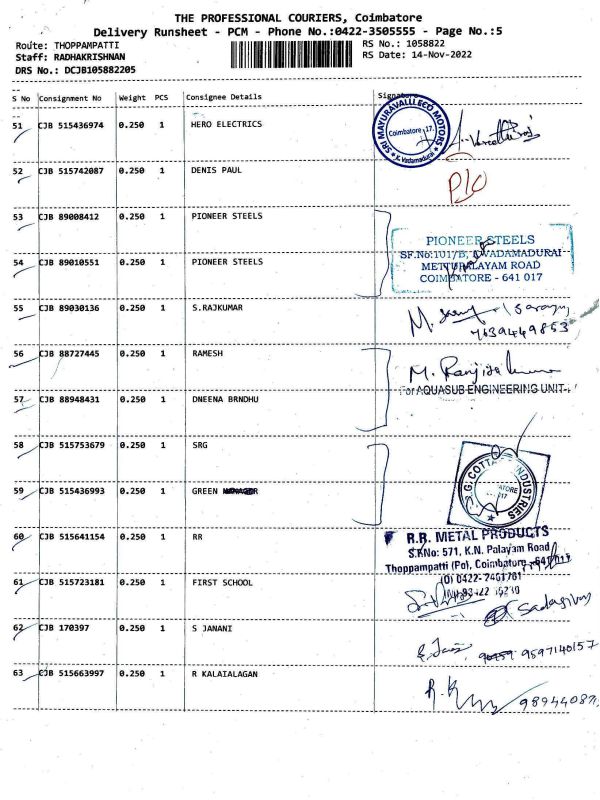 THE PROFESSIONAL COURIERS, Coimbatore
Delivery Runsheet - PCM - Phone No.:0422-3505555 - Page No.:5
Route: THOPPAMPATTI RS No.: 1058822
Staff: RADHAKRISHNAN RS Date: 14-Nov-2022
DRS No.: DCJB105882205
S No Consignment No Weight PCS Consignee Details Signature
51 CJB 515436974 0.250 1 HERO ELECTRICS
SRI MAYURAVALLI ECO MOTORS
Coimbatore - 17.
K. Vadamadurai
52 CJB 515742087 0.250 1 DENIS PAUL
P/O
53 CJB 89008412 0.250 1 PIONEER STEELS
PIONEER STEELS
SF.No:1017/B, VADAMADURAI
METTUPALAYAM ROAD
COIMBATORE - 641 017
54 CJB 89010551 0.250 1 PIONEER STEELS
55 CJB 89030136 0.250 1 S.RAJKUMAR
7639449853
56 CJB 88727445 0.250 1 RAMESH
For AQUASUB ENGINEERING UNIT-I
57 CJB 88948431 0.250 1 DNEENA BRNDHU
58 CJB 515753679 0.250 1 SRG
INDUSTRIES
59 CJB 515436993 0.250 1 GREEN
60 CJB 515641154 0.250 1 RR
R.R. METAL PRODUCTS
S.F.No: 571, K.N. Palayam Road
Thoppampatti (Po), Coimbatore
61 CJB 515723181 0.250 1 FIRST SCHOOL
Sadasivam
62 CJB 170397 0.250 1 S JANANI
9597140157
63 CJB 515663997 0.250 1 R KALAIALAGAN
R.K